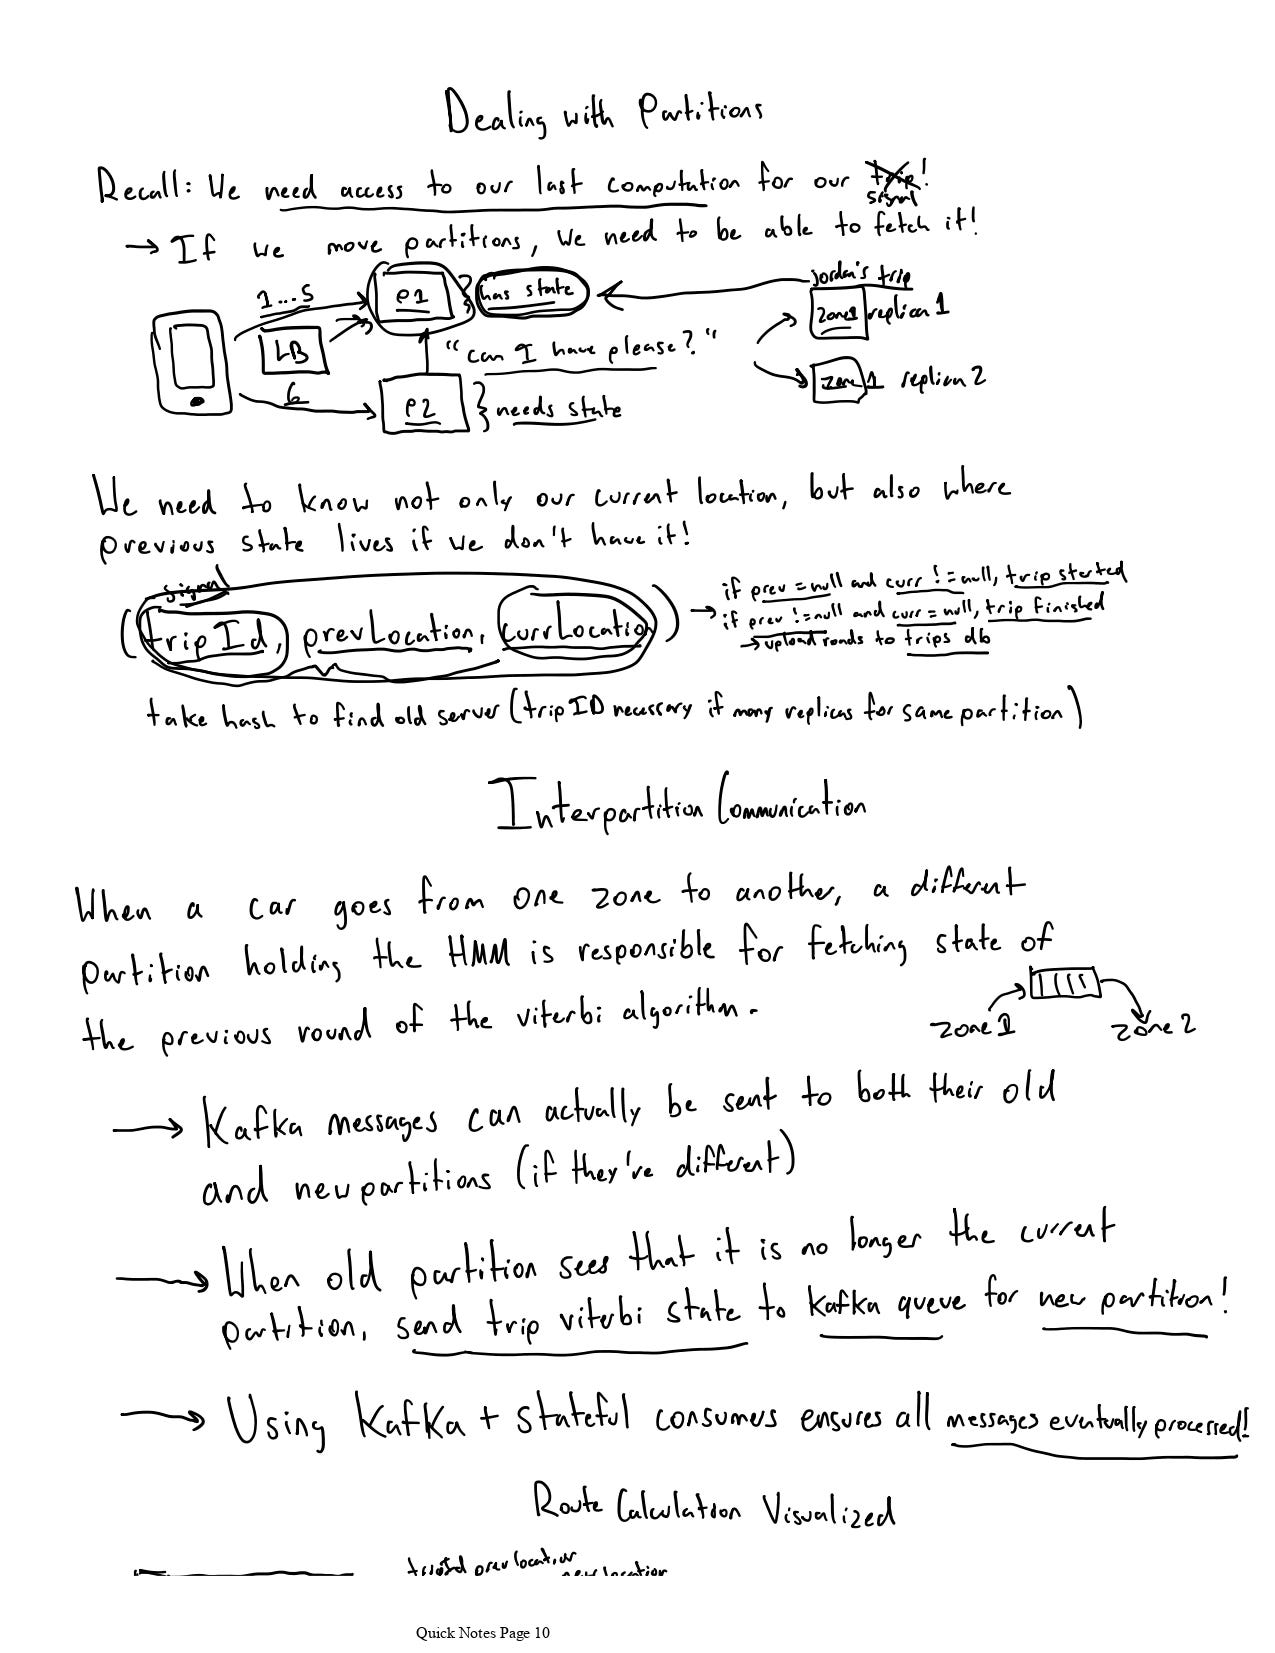 Dealing with Partitions
Recall: We need access to our last computation for our trip!
signal
→ If we move partitions, we need to be able to fetch it!
Jordan's trip
1...5
P1
has state
zone1 replica 1
LB
"can I have please?"
zone 1 replica 2
6
P2
needs state
We need to know not only our current location, but also where
previous state lives if we don't have it!
signal
(tripId, prevLocation, currLocation)
→ if prev = null and curr != null, trip started
if prev != null and curr = null, trip finished
→ upload roads to trips db
take hash to find old server (tripID necessary if many replicas for same partition)
Interpartition Communication
When a car goes from one zone to another, a different
partition holding the HMM is responsible for fetching state of
the previous round of the viterbi algorithm.
zone 1
zone 2
→ Kafka messages can actually be sent to both their old
and new partitions (if they're different)
→ When old partition sees that it is no longer the current
partition, send trip viterbi state to kafka queue for new partition!
→ Using Kafka + stateful consumers ensures all messages eventually processed!
Route Calculation Visualized
tripId prev location
new location
Quick Notes Page 10